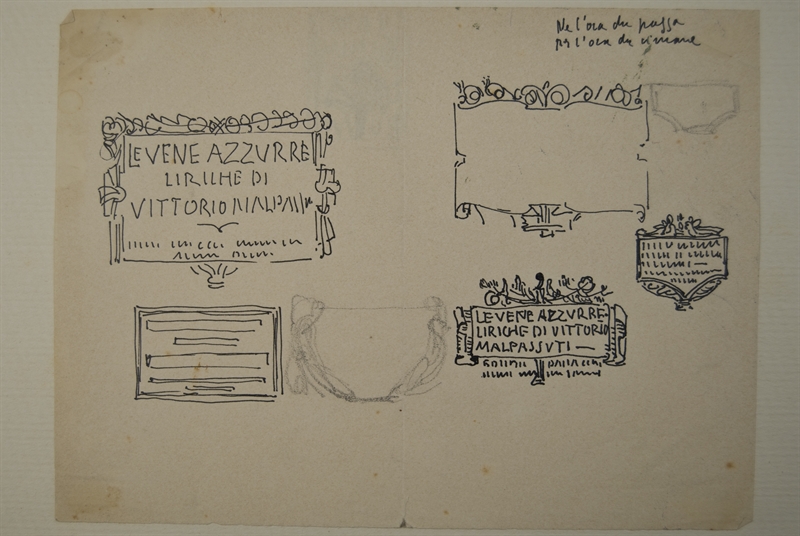 Ne l'ora che passa
per l'ora che rimane
LE VENE AZZVRRE
LIRICHE DI
VITTORIO MALPASS
LE VENE AZZVRRE
LIRICHE DI VITTORIO
MALPASSVTI